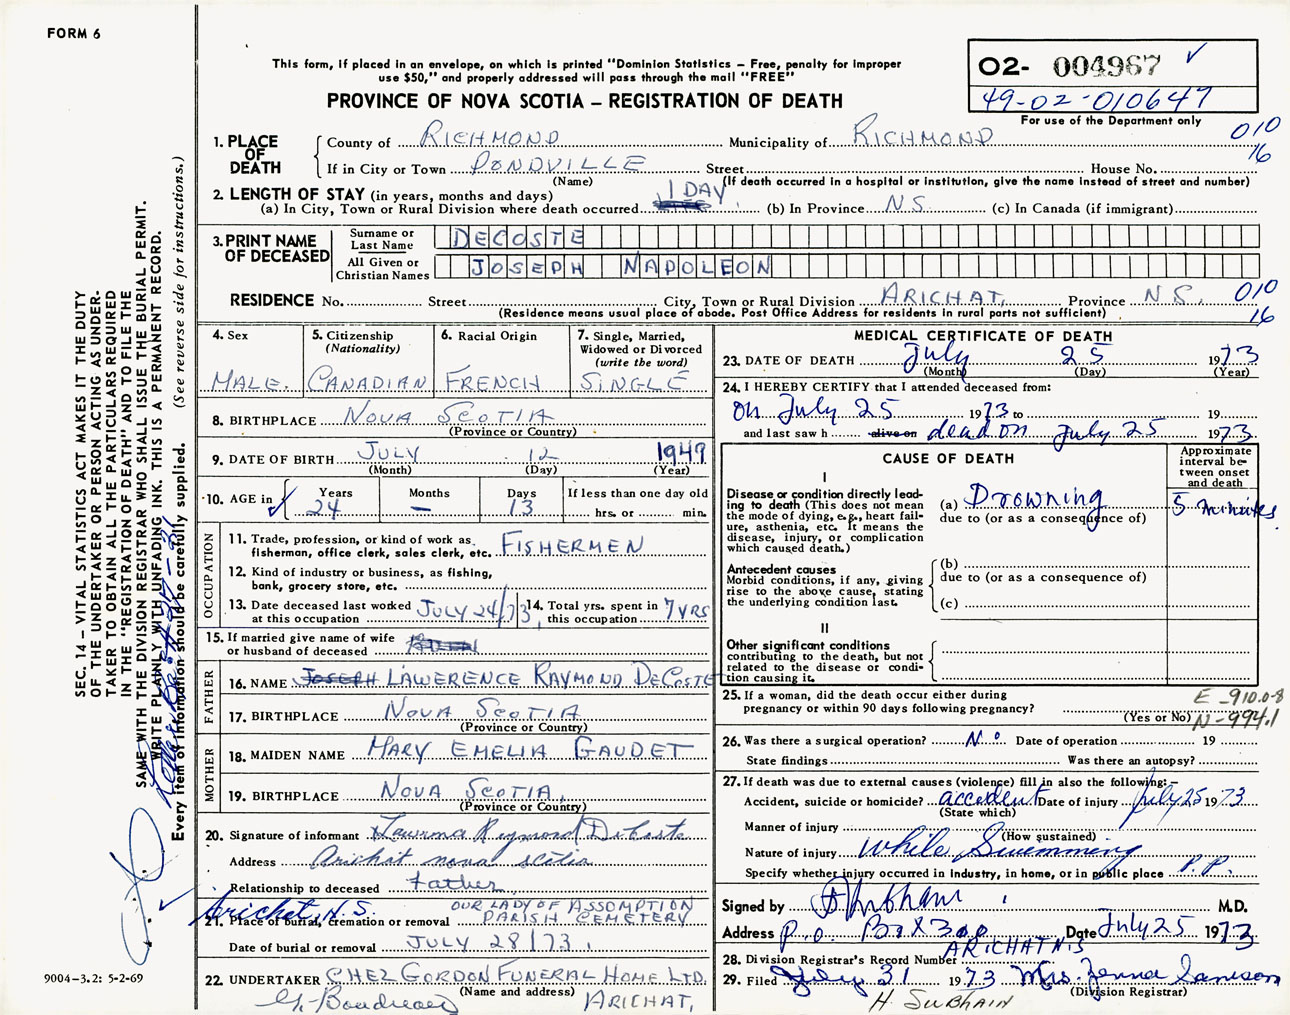 FORM 6
This form, if placed in an envelope, on which is printed "Dominion Statistics – Free, penalty for improper
use $50," and properly addressed will pass through the mail "FREE"
PROVINCE OF NOVA SCOTIA – REGISTRATION OF DEATH
O2- 004967
49-02-010647
For use of the Department only
010
16
1. PLACE OF DEATH County of RICHMOND Municipality of RICHMOND
If in City or Town PONDVILLE Street House No.
(Name) (If death occurred in a hospital or institution, give the name instead of street and number)
2. LENGTH OF STAY (in years, months and days)
(a) In City, Town or Rural Division where death occurred 1 DAY (b) In Province N.S. (c) In Canada (if immigrant)
3. PRINT NAME OF DECEASED
Surname or Last Name DECOSTE
All Given or Christian Names JOSEPH NAPOLEON
RESIDENCE No. Street City, Town or Rural Division ARICHAT, Province N.S. 010
(Residence means usual place of abode. Post Office Address for residents in rural parts not sufficient) 16
4. Sex
MALE.
5. Citizenship
(Nationality)
CANADIAN
6. Racial Origin
FRENCH
7. Single, Married,
Widowed or Divorced
(write the word)
SINGLE
8. BIRTHPLACE NOVA SCOTIA
(Province or Country)
9. DATE OF BIRTH JULY 12 1949
(Month) (Day) (Year)
10. AGE in Years Months Days If less than one day old
24 — 13 hrs. or min.
OCCUPATION
11. Trade, profession, or kind of work as
fisherman, office clerk, sales clerk, etc. FISHERMEN
12. Kind of industry or business, as fishing,
bank, grocery store, etc.
13. Date deceased last worked at this occupation JULY 24/73
14. Total yrs. spent in this occupation 7 YRS
15. If married give name of wife
or husband of deceased
FATHER
16. NAME JOSEPH LAWERENCE RAYMOND DECOSTE
17. BIRTHPLACE NOVA SCOTIA
(Province or Country)
MOTHER
18. MAIDEN NAME MARY EMELIA GAUDET
19. BIRTHPLACE NOVA SCOTIA,
(Province or Country)
20. Signature of informant Raymond
Address Arichat nova scotia
Relationship to deceased Father
Arichat, N.S. OUR LADY OF ASSOMPTION
21. Place of burial, cremation or removal PARISH CEMETERY
Date of burial or removal JULY 28/73.
22. UNDERTAKER CHEZ GORDON FUNERAL HOME LTD.
(Name and address)
Boudreau ARICHAT,
MEDICAL CERTIFICATE OF DEATH
23. DATE OF DEATH July 25 1973
(Month) (Day) (Year)
24. I HEREBY CERTIFY that I attended deceased from:
on July 25 1973 to 19
and last saw h alive on dead on July 25 1973
CAUSE OF DEATH
Approximate
interval be-
tween onset
and death
I
Disease or condition directly lead-
ing to death (This does not mean
the mode of dying, e.g., heart fail-
ure, asthenia, etc. It means the
disease, injury, or complication
which caused death.)
(a) Drowning 5 minutes
due to (or as a consequence of)
Antecedent causes
Morbid conditions, if any, giving
rise to the above cause, stating
the underlying condition last.
(b)
due to (or as a consequence of)
(c)
II
Other significant conditions
contributing to the death, but not
related to the disease or condi-
tion causing it.
25. If a woman, did the death occur either during
pregnancy or within 90 days following pregnancy?
(Yes or No)
E-910.0-8
N-994.1
26. Was there a surgical operation? No Date of operation 19
State findings Was there an autopsy?
27. If death was due to external causes (violence) fill in also the following:–
Accident, suicide or homicide? accident Date of injury July 25 1973
(State which)
Manner of injury
(How sustained)
Nature of injury While Swemmeng
Specify whether injury occurred in industry, in home, or in public place P.P.
Signed by M.D.
Address P.O. Box 300 Date July 25 1973
ARICHAT N.S
28. Division Registrar's Record Number
29. Filed July 31 1973 Mrs.
(Division Registrar)
H. SUBHAIN
SEC. 14 – VITAL STATISTICS ACT MAKES IT THE DUTY
OF THE UNDERTAKER OR PERSON ACTING AS UNDER-
TAKER TO OBTAIN ALL THE PARTICULARS REQUIRED
IN THE "REGISTRATION OF DEATH" AND TO FILE THE
SAME WITH THE DIVISION REGISTRAR WHO SHALL ISSUE THE BURIAL PERMIT.
WRITE PLAINLY WITH UNFADING INK. THIS IS A PERMANENT RECORD.
Every item of information should be carefully supplied. (See reverse side for instructions.)
9004-3.2: 5-2-69